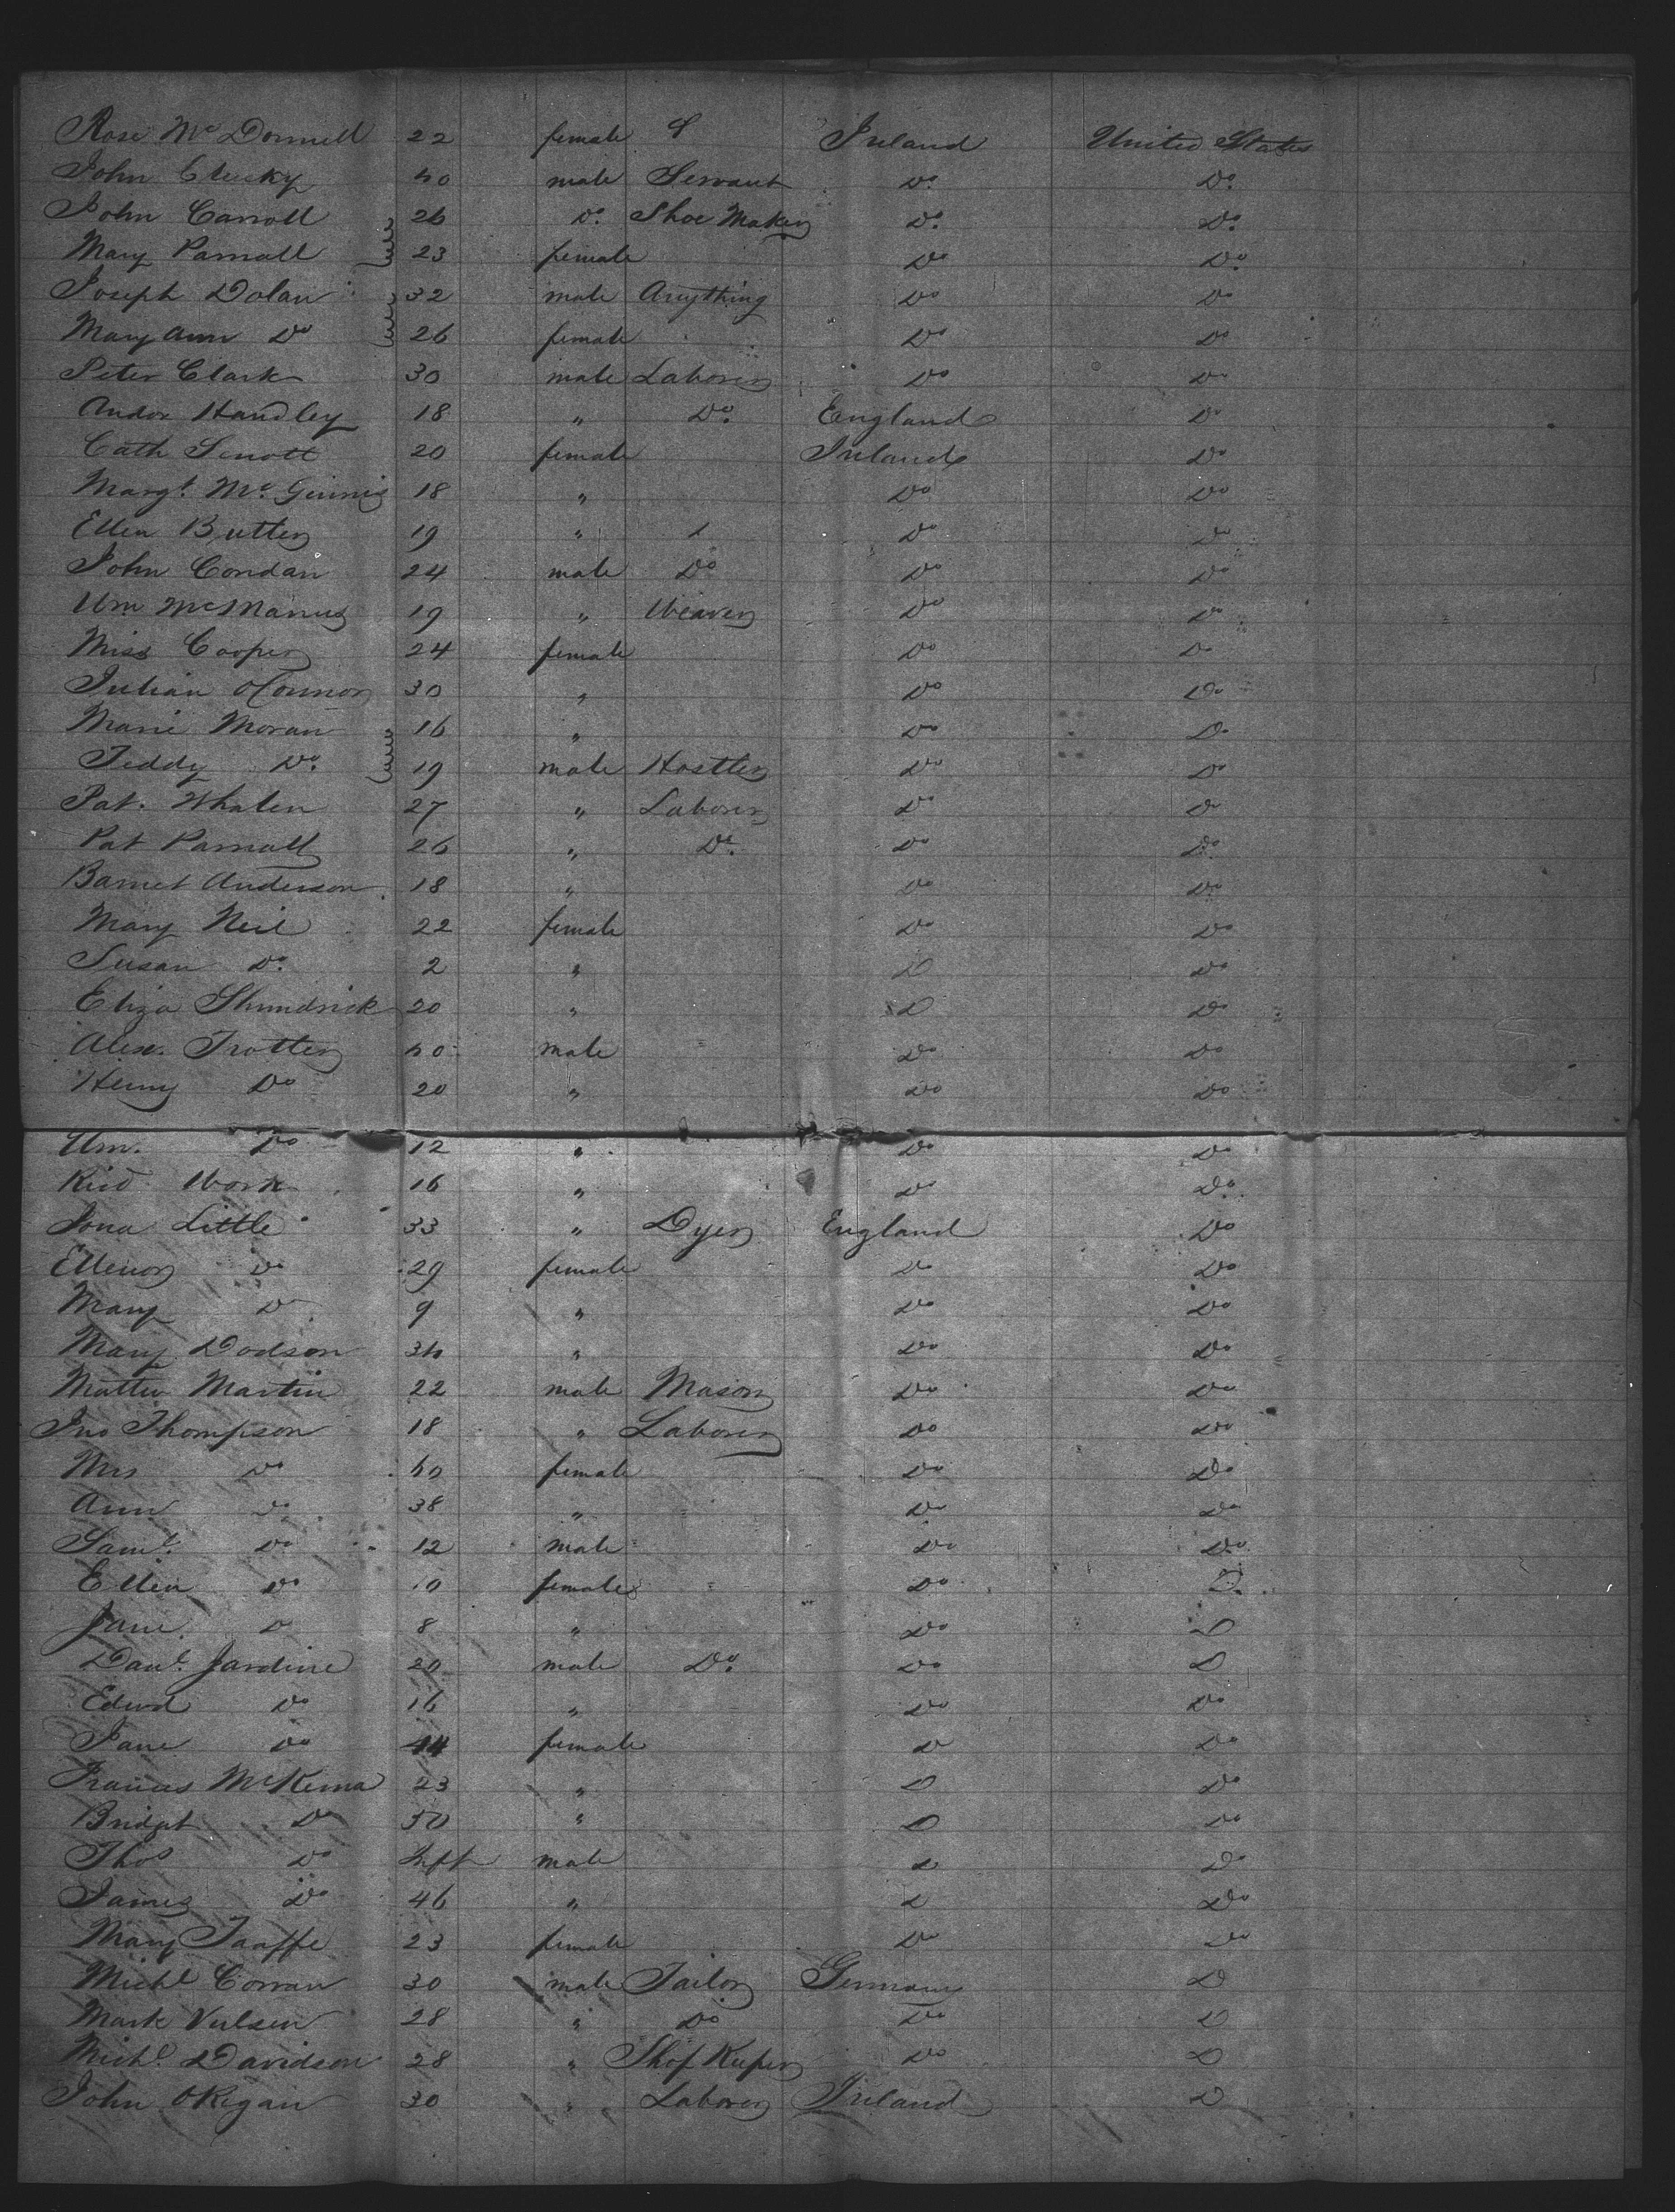 Rose McDonnell 22 female Ireland United States
John Clucky 40 male Servant Do. Do.
John Carroll 26 Do. Shoe Maker Do. Do.
Mary Parnall 23 female Do Do.
Joseph Dolan 32 male Anything Do Do
Mary Ann Do 26 female Do Do
Peter Clark 30 male Laborer Do Do
Andw Handley 18 " Do. England Do
Cath Sinott 20 female Ireland Do
Margt. Mc.Ginnis 18 " Do Do
Ellen Butler 19 " Do Do
John Condan 24 male Do Do Do
Wm McManus 19 " Weaver Do Do
Miss Cooper 24 female Do Do
Julian OConnor 30 " Do Do
Marie Moran 16 " Do Do
Teddy Do. 19 male Hostler Do Do
Pat. Whalen 27 " Laborer Do Do
Pat Parnall 26 " Do. Do Do
Barnet Anderson 18 " Do Do
Mary Neil 22 female Do Do
Susan Do. 2 " D Do
Eliza Shundrick 20 " D Do
Alex. Trotter 40 male Do Do
Henry Do 20 " Do Do
Wm. Do 12 " Do Do
Richd Work 16 " Do Do.
Jona Little 33 " Dyer England Do
Ellenor Do 29 female Do Do
Mary Do 9 " Do Do
Mary Dodson 34 " Do Do
Mattew Martin 22 male Mason Do Do
Jno Thompson 18 " Laborer Do Do
Mrs Do 40 female Do Do
Ann Do. 38 " Do Do
Saml. Do 12 male Do Do
Ellen Do 10 female Do D.
Jane D 8 " Do D
Danl. Jardine 20 male Do. Do D
Edwd Do 16 " Do Do
Jane Do 14 female D Do
Frances McKenna 23 " D Do
Bridget Do 50 " D Do
Thos Do Inft male D Do
James Do 46 " D Do
Mary Taaffe 23 female Do Do
Michl Corran 30 male Tailor Germany D
Mark Vulsen 28 " Do Do D
Michl. Davidson 28 " Shop Keeper Do D
John OKegan 30 " Laborer Ireland D